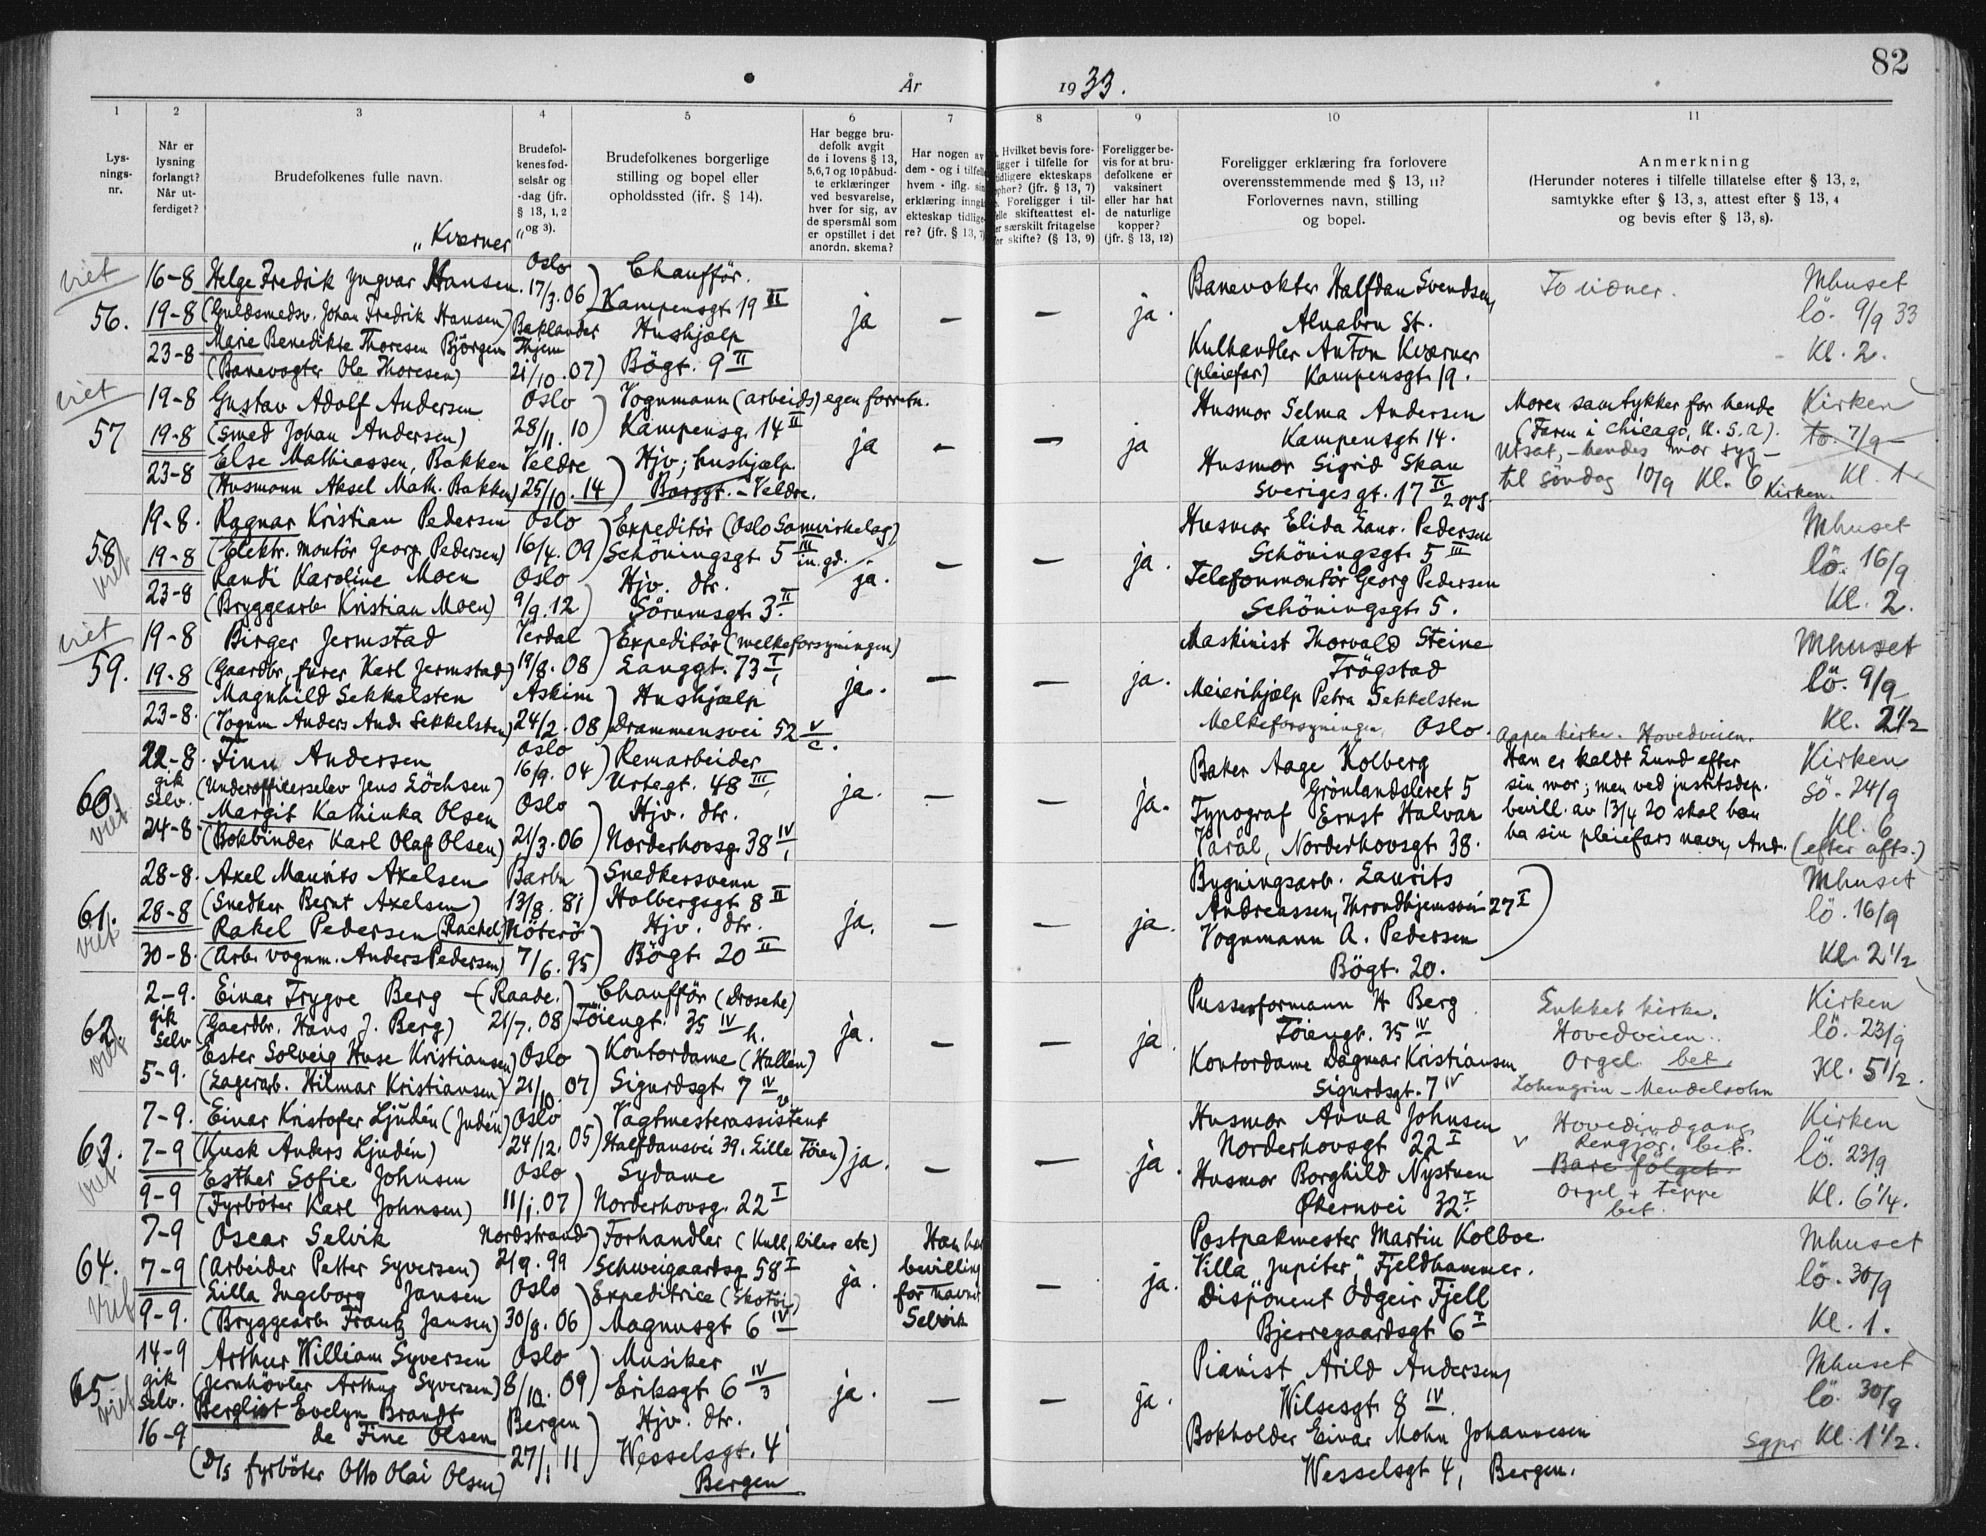 82
År 1933.
1 2 3 4 5 6 7 8 9 10 11
Lys-
nings-
nr.
Når er
lysning
forlangt?
Når ut-
ferdiget?
Brudefolkenes fulle navn.
Brudefol-
kenes fød-
selsår og
-dag (jfr.
§ 13, 1, 2
og 3).
Brudefolkenes borgerlige
stilling og bopel eller
opholdssted (jfr. § 14).
Har begge bru-
defolk avgit
de i lovens § 13,
5,6,7 og 10 påbud-
te erklæringer
ved besvarelse,
hver for sig, av
de spørsmål som
er opstillet i det
anordn. skema?
Har nogen av
dem - og i tilfelle
hvem - iflg. sin
erklæring inngått
ekteskap tidlige-
re? (jfr. § 13, 7)
Hvilket bevis fore-
ligger i tilfelle for
tidligere ekteskaps
ophør? (jfr. § 13, 7)
Foreligger i til-
felle skifteattest el-
ler særskilt fritagelse
for skifte? (§ 13, 9)
Foreligger be-
vis for at bru-
defolkene er
vaksinert
eller har hat
de naturlige
kopper?
(jfr. § 13, 12)
Foreligger erklæring fra forlovere
overensstemmende med § 13, 11?
Forlovernes navn, stilling
og bopel.
Anmerkning
(Herunder noteres i tilfelle tillatelse efter § 13, 2,
samtykke efter § 13, 3, attest efter § 13, 4
og bevis efter § 13, 8).
viet
56.
16-8
19-8
23-8
„ Kværner „
Helge Fredrik Yngvar Hansen
(Guldsmedsv. Johan Fredrik Hansen)
Marie Benedikte Thoresen Björgen
(Banevogter Ole Thoresen)
Oslo
17/3. 06
Baklandet
Thjem
21/10. 07
Chauffør.
Kampensgt 19 II
Hushjælp
Bögt. 9 II
ja — — ja.
Banevokter Halfdan Svendsen,
Alnabru St.
Kulhandler Anton Kværner
(pleiefar) Kampensgt 19.
To vidner.
Mhuset
lö. 9/9 33
Kl. 2.
viet
57
19-8
19-8
23-8
Gustav Adolf Andersen
(Smed Johan Andersen)
Else Mathiassen, Bakken
(Husmann Aksel Math. Bakken)
Oslo
28/11. 10
Veldre
25/10. 14
Vognmann (arbeids) egen forretn.
Kampensg. 14 II
Hjv; hushjælp.
Borggt. – Veldre.
ja - — ja
Husmor Selma Andersen
Kampensgt 14.
Husmor Sigrid Skau
Sveriges gt. 17 II 2 opg
Moren samtykker for hende
(Faren i Chicago, U.S.A).
Utsat, – hendes mor syg –
til Söndag 10/9 Kl. 6 Kirken.
Kirken
to. 7/9 —
Kl. 1
58
viet
19-8.
19-8
23-8
Ragnar Kristian Pedersen
(Elektr. montör Georg Pedersen)
Randi Karoline Moen
(Bryggearb. Kristian Moen)
Oslo
16/4. 09
Oslo
9/9. 12
Expeditör (Oslo Samvirkelag)
Schöningsgt 5 III in. gd.
Hjv. dtr.
Sörumsgt 3. II
ja. — — ja.
Husmor Elida Laur. Pedersen
Schöningsgt. 5 III
Telefonmontör Georg Pedersen
Schöningsgt. 5.
Mhuset
lö. 16/9
Kl. 2.
viet
59.
19-8
19-8
23-8.
Birger Jermstad
(Gaardbr, furer Karl Jermstad)
Magnhild Sekkelsten
(Vognm Anders And. Sekkelsten)
Verdal
19/8. 08
Askim
24/2. 08
Expeditör (melkeforsyningen)
Langgt. 73 I
Hushjælp
Drammensvei 52 V c.
ja. — — ja.
Maskinist Thorvald Steine
Trögstad
Meierihjælp Petra Sekkelsten
Melkeforsyningen, Oslo.
Mhuset
lö. 9/9
Kl. 2½
60.
viet
22-8.
gik
selv.
24-8
Finn Andersen
(Underofficerselev Jens Löchsen)
Margit Kathinka Olsen
(Bokbinder Karl Olaf Olsen)
Oslo
16/9. 04
Oslo
21/3. 06
Remarbeider
Urtegt. 48 III
Hjv. dtr.
Norderhovsg. 38 IV
ja. — — ja.
Baker Aage Kolberg
Grönlandsleret 5
Typograf Ernst Halvar
Varål, Norderhovsgt 38.
Aapen kirke. Hovedveien.
Han er kaldt Lund efter
sin mor; men ved justitsdep.
bevill. av 13/4 20 skal han
ha sin pleiefars navn, And.
Kirken
sö. 24/9
Kl. 6
(efter afts.)
61.
viet
28-8.
28-8
30-8.
Axel Maurits Axelsen
(Snedker Bernt Axelsen)
Rakel Pedersen (Rachel)
(Arb. vognm. Anders Pedersen)
Barbu
13/8. 81
Nöterö
7/6. 95
Snedkersvenn
Holbergsgt 8 II
Hjv. dtr.
Bögt. 20 II
ja. — — ja.
Bygningsarb. Laurits
Andreassen, Throndhjemsvei 27 I
Vognmann A. Pedersen
Bögt. 20.
Mhuset
lö. 16/9
Kl. 2½
62.
viet
2-9.
gik
selv
5-9.
Einar Trygve Berg
(Gaardbr. Hans J. Berg)
Ester Solveig Huse Kristiansen
(Lagerarb. Hilmar Kristiansen)
(Raade.
21/7. 08
Oslo
21/10 07
Chauffør (Drosche)
Töiengt. 35 IV h.
Kontordame (Hallén)
Sigurdsgt 7 IV v
ja. — — ja
Pussesformann H Berg
Töiengt. 35 IV
Kontordame Dagmar Kristiansen
Sigurdsgt. 7 IV
Lukket kirke.
Hovedveien.
Orgel bet.
Lohengrin – Mendelsohn
Kirken
lö. 23/9
Kl. 5½.
63.
viet
7-9.
7-9
9-9
Einar Kristofer Ljudén (Judén)
(Kusk Anders Ljudén)
Esther Sofie Johnsen
(Fyrböter Karl Johnsen)
Oslo
24/12. 05
Oslo
11/1. 07
Vagtmesterassistent
Halfdansvei 39. Lille Töien
Sydame
Norderhovsg. 22 I
ja. — — ja.
Husmor Anna Johnsen
Norderhovsgt 22 I
Husmor Borghild Nystuen
Økernvei 32. I
Hovedindgang
v Rengjör. bet.
Bare fölget.
Orgel + teppe
bet.
Kirken
lö. 23/9
Kl. 6¼.
64.
viet
7-9
7-9
9-9.
Oscar Selvik
(Arbeider Petter Syversen)
Lilla Ingeborg Jansen
(Bryggearb. Frantz Jansen)
Nordstrand
21/9. 99
Oslo
30/8. 06
Forhandler (Kull, biler etc)
Schweigaardsg. 58 I
Expeditrice (Skotöi)
Magnusgt 6 IV
ja.
Han har
bevilling
for navnet
Selvik
— ja.
Postpakmester Martin Kolboe.
Villa „Jupiter", Fjeldhammer.
Disponent Odgeir Fjell
Bjerregaardsgt. 6 I
Mhuset
lö. 30/9
Kl. 1.
65
viet
14-9
gik
selv.
16-9
Arthur William Syversen
(Jernhövler Arthur Syversen)
Bergliot Evelyn Brandt
de Fine Olsen
(D/s fyrböter Otto Olai Olsen)
Oslo
8/10. 09
Bergen
27/1 11
Musiker
Eriksgt 6 IV/3
Hjv. dtr.
Wesselsgt. 4
Bergen
ja. — — ja.
Pianist Arild Andersen,
Wilsesgt. 8 IV.
Bokholder Einar Mohn Johannesen
Wesselsgt 4, Bergen.
Mhuset
lö. 30/9
Kl. 1½.